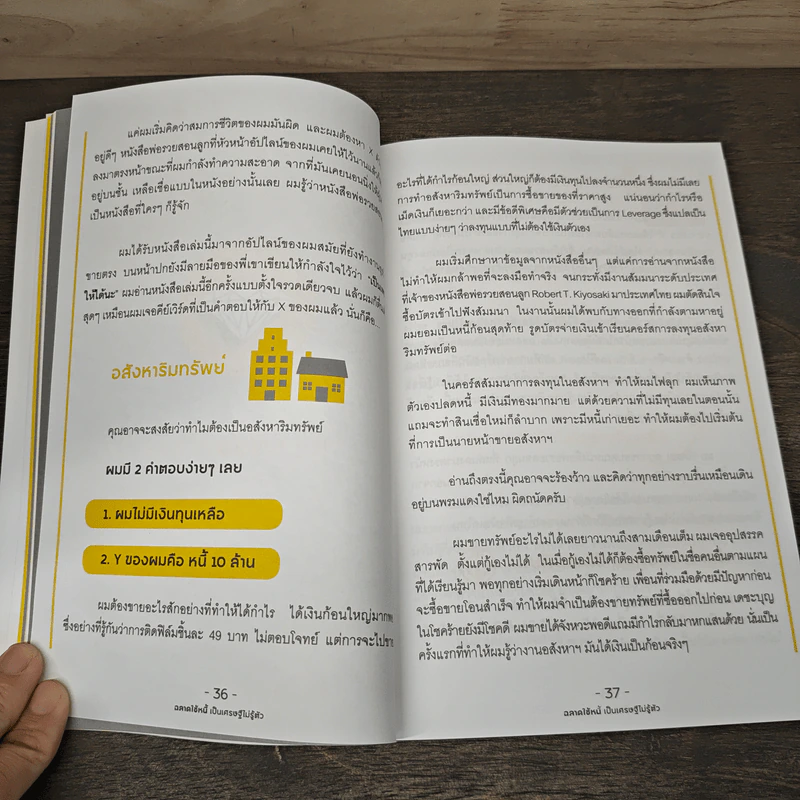 แค่ผมเริ่มคิดว่าสมการชีวิตของผมมันผิด และผมต้องหา X
อยู่ดีๆ หนังสือพ่อรวยสอนลูกที่หัวหน้าอัปไลน์ของผมเคยให้ไว้นานแล้ว
ลงมาตรงหน้าขณะที่ผมกำลังทำความสะอาด จากที่มันเคยนอนนิ่ง
อยู่บนชั้น เหลือเชื่อแบบในหนังอย่างนั้นเลย ผมรู้ว่าหนังสือพ่อรวยสอน
เป็นหนังสือที่ใครๆ ก็รู้จัก
ผมได้รับหนังสือเล่มนี้มาจากอัปไลน์ของผมสมัยที่ยังทำงาน
ขายตรง บนหน้าปกยังมีลายมือของพี่เขาเขียนให้กำลังใจไว้ว่า "เป็น
ให้ได้นะ" ผมอ่านหนังสือเล่มนี้อีกครั้งแบบตั้งใจรวดเดียวจบ แล้วผมก็
สุดๆ เหมือนผมเจอคีย์เวิร์ดที่เป็นคำตอบให้กับ X ของผมแล้ว นั่นก็คือ
อสังหาริมทรัพย์
คุณอาจจะสงสัยว่าทำไมต้องเป็นอสังหาริมทรัพย์
ผมมี 2 คำตอบง่ายๆ เลย
1. ผมไม่มีเงินทุนเหลือ
2. Y ของผมคือ หนี้ 10 ล้าน
ผมต้องขายอะไรสักอย่างที่ทำให้ได้กำไร ได้เงินก้อนใหญ่มาก
ซึ่งอย่างที่รู้กันว่าการติดฟิล์มชิ้นละ 49 บาท ไม่ตอบโจทย์ แต่การจะไปขาย
- 36 -
ฉลาดใช้หนี้ เป็นเศรษฐีไม่รู้ตัว
อะไรที่ได้กำไรก้อนใหญ่ ส่วนใหญ่ก็ต้องมีเงินทุนไปลงจำนวนหนึ่ง ซึ่งผมไม่มีเลย
การทำอสังหาริมทรัพย์เป็นการซื้อขายของที่ราคาสูง แน่นอนว่ากำไรหรือ
เม็ดเงินก็เยอะกว่า และมีข้อดีพิเศษคือมีตัวช่วยเป็นการ Leverage ซึ่งแปลเป็น
ไทยแบบง่ายๆ ว่าลงทุนแบบที่ไม่ต้องใช้เงินตัวเอง
ผมเริ่มศึกษาหาข้อมูลจากหนังสืออื่นๆ แต่แค่การอ่านจากหนังสือ
ไม่ทำให้ผมกล้าพอที่จะลงมือทำจริง จนกระทั่งมีงานสัมมนาระดับประเทศ
ที่เจ้าของหนังสือพ่อรวยสอนลูก Robert T. Kiyosaki มาประเทศไทย ผมตัดสินใจ
ซื้อบัตรเข้าไปฟังสัมมนา ในงานนั้นผมได้พบกับทางออกที่กำลังตามหาอยู่
ผมยอมเป็นหนี้ก้อนสุดท้าย รูดบัตรจ่ายเงินเข้าเรียนคอร์สการลงทุนอสังหา
ริมทรัพย์ต่อ
ในคอร์สสัมมนาการลงทุนในอสังหาฯ ทำให้ผมไฟลุก ผมเห็นภาพ
ตัวเองปลดหนี้ มีเงินมีทองมากมาย แต่ด้วยความที่ไม่มีทุนเลยในตอนนั้น
แถมจะทำสินเชื่อใหม่ก็ลำบาก เพราะมีหนี้เก่าเยอะ ทำให้ผมต้องไปเริ่มต้น
ที่การเป็นนายหน้าขายอสังหาฯ
อ่านถึงตรงนี้คุณอาจจะร้องว้าว และคิดว่าทุกอย่างราบรื่นเหมือนเดิน
อยู่บนพรมแดงใช่ไหม ผิดถนัดครับ
ผมขายทรัพย์อะไรไม่ได้เลยยาวนานถึงสามเดือนเต็ม ผมเจออุปสรรค
สารพัด ตั้งแต่กู้เองไม่ได้ ในเมื่อกู้เองไม่ได้ก็ต้องซื้อทรัพย์ในชื่อคนอื่นตามแผน
ที่ได้เรียนรู้มา พอทุกอย่างเริ่มเดินหน้าก็โชคร้าย เพื่อนที่ร่วมมือด้วยมีปัญหาก่อน
จะซื้อขายโอนสำเร็จ ทำให้ผมจำเป็นต้องขายทรัพย์ที่ซื้อออกไปก่อน เดชะบุญ
ในโชคร้ายยังมีโชคดี ผมขายได้จังหวะพอดีแถมมีกำไรกลับมาหกแสนด้วย นั่นเป็น
ครั้งแรกที่ทำให้ผมรู้ว่างานอสังหาฯ มันได้เงินเป็นก้อนจริงๆ
- 37 -
ฉลาดใช้หนี้ เป็นเศรษฐีไม่รู้ตัว